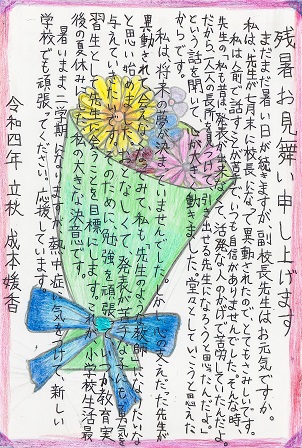 残暑お見舞い申し上げます
まだまだ暑い日が続きますが、副校長先生はお元気ですか。
私は、先生が七月末に校長になって異動されたので、とてもさみしいです。
私は人前で話すことが苦手で、いつも自信がありませんでした。そんな時、
先生の「私も昔は、発表が出来なくて、活発な人のかげで苦労していたんだよ。
だから一人一人の長所を見つけて、引き出せる先生になろうと思ったんだよ。」
という話を聞いて、心が大きく動きました。堂々としていこうと思えた
からです。
私は、将来の夢が決まっていませんでした。しかし心の支えだった先生が
異動されて会えなくなってみて、私も「先生のような教師になりたいな」
と思い始めました。おとなしくて、発表が苦手な子にも勇気を
与えていきたいです。そのために、勉強を頑張って、いつか教育実
習生として先生に会うことを目標にします。これが、小学校生活最
後の夏休みにした、私の大きな決意です。
暑いまま二学期になりますが、熱中症に気をつけて、新しい
学校でも頑張ってください。応援しています。
令和四年 立秋 成本媛香